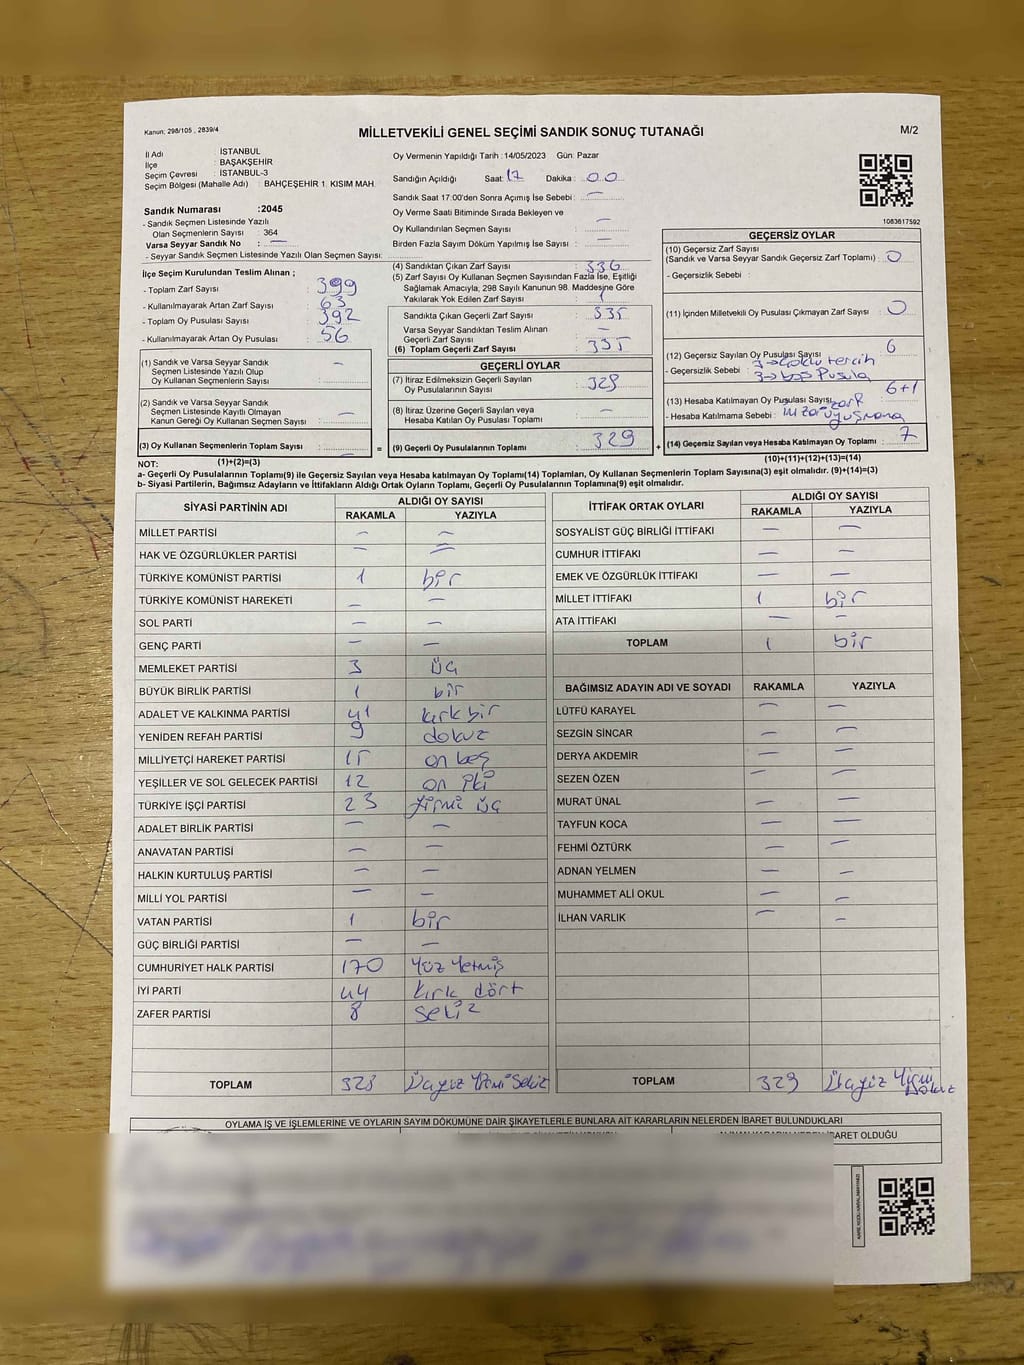 Kanun: 298/105 , 2839/4
MİLLETVEKİLİ GENEL SEÇİMİ SANDIK SONUÇ TUTANAĞI
M/2
İl Adı : İSTANBUL
İlçe : BAŞAKŞEHİR
Seçim Çevresi : İSTANBUL-3
Seçim Bölgesi (Mahalle Adı) : BAHÇEŞEHİR 1. KISIM MAH.
Sandık Numarası :2045
- Sandık Seçmen Listesinde Yazılı
Olan Seçmenlerin Sayısı : 364
Varsa Seyyar Sandık No : —
- Seyyar Sandık Seçmen Listesinde Yazılı Olan Seçmen Sayısı:
Oy Vermenin Yapıldığı Tarih :14/05/2023 Gün: Pazar
Sandığın Açıldığı Saat: 17 Dakika : 00
Sandık Saat 17:00'den Sonra Açımış İse Sebebi : —
Oy Verme Saati Bitiminde Sırada Bekleyen ve
Oy Kullandırılan Seçmen Sayısı : —
Birden Fazla Sayım Döküm Yapılmış İse Sayısı : —
1083617592
İlçe Seçim Kurulundan Teslim Alınan ;
- Toplam Zarf Sayısı : 399
- Kullanılmayarak Artan Zarf Sayısı : 63
- Toplam Oy Pusulası Sayısı : 392
- Kullanılmayarak Artan Oy Pusulası : 56
(1) Sandık ve Varsa Seyyar Sandık
Seçmen Listesinde Yazılı Olup
Oy Kullanan Seçmenlerin Sayısı : —
(2) Sandık ve Varsa Seyyar Sandık
Seçmen Listesinde Kayıtlı Olmayan
Kanun Gereği Oy Kullanan Seçmen Sayısı : —
(3) Oy Kullanan Seçmenlerin Toplam Sayısı : —
(1)+(2)=(3)
(4) Sandıktan Çıkan Zarf Sayısı : 336
(5) Zarf Sayısı Oy Kullanan Seçmen Sayısından Fazla İse, Eşitliği
Sağlamak Amacıyla, 298 Sayılı Kanunun 98. Maddesine Göre
Yakılarak Yok Edilen Zarf Sayısı : 1
Sandıkta Çıkan Geçerli Zarf Sayısı : 335
Varsa Seyyar Sandıktan Teslim Alınan
Geçerli Zarf Sayısı : —
(6) Toplam Geçerli Zarf Sayısı : 335
GEÇERLİ OYLAR
(7) İtiraz Edilmeksizin Geçerli Sayılan
Oy Pusulalarının Sayısı : 329
(8) İtiraz Üzerine Geçerli Sayılan veya
Hesaba Katılan Oy Pusulası Sayısı : —
= (9) Geçerli Oy Pusulalarının Toplamı : 329 +
GEÇERSİZ OYLAR
(10) Geçersiz Zarf Sayısı
(Sandık ve Varsa Seyyar Sandık Geçersiz Zarf Toplamı) : 0
- Geçersizlik Sebebi :
(11) İçinden Milletvekili Oy Pusulası Çıkmayan Zarf Sayısı : 0
(12) Geçersiz Sayılan Oy Pusulası Sayısı : 6
- Geçersizlik Sebebi : 3→çoklu tercih
3→boş pusula
(13) Hesaba Katılmayan Oy Pusulası Sayısı : 6+1
- Hesaba Katılmama Sebebi : imza-zarf
uyuşmama
(14) Geçersiz Sayılan veya Hesaba Katılmayan Oy Toplamı : 7
(10)+(11)+(12)+(13)=(14)
NOT:
a- Geçerli Oy Pusulalarının Toplamı(9) ile Geçersiz Sayılan veya Hesaba katılmayan Oy Toplamı(14) Toplamları, Oy Kullanan Seçmenlerin Toplam Sayısına(3) eşit olmalıdır. (9)+(14)=(3)
b- Siyasi Partilerin, Bağımsız Adayların ve İttifakların Aldığı Ortak Oyların Toplamı, Geçerli Oy Pusulalarının Toplamına(9) eşit olmalıdır.
SİYASİ PARTİNİN ADI ALDIĞI OY SAYISI
RAKAMLA YAZIYLA
MİLLET PARTİSİ — —
HAK VE ÖZGÜRLÜKLER PARTİSİ — —
TÜRKİYE KOMÜNİST PARTİSİ 1 bir
TÜRKİYE KOMÜNİST HAREKETİ — —
SOL PARTİ — —
GENÇ PARTİ — —
MEMLEKET PARTİSİ 3 üç
BÜYÜK BİRLİK PARTİSİ 1 bir
ADALET VE KALKINMA PARTİSİ 41 kırk bir
YENİDEN REFAH PARTİSİ 9 dokuz
MİLLİYETÇİ HAREKET PARTİSİ 15 on beş
YEŞİLLER VE SOL GELECEK PARTİSİ 12 on iki
TÜRKİYE İŞÇİ PARTİSİ 23 yirmi üç
ADALET BİRLİK PARTİSİ — —
ANAVATAN PARTİSİ — —
HALKIN KURTULUŞ PARTİSİ — —
MİLLİ YOL PARTİSİ — —
VATAN PARTİSİ 1 bir
GÜÇ BİRLİĞİ PARTİSİ — —
CUMHURİYET HALK PARTİSİ 170 Yüz Yetmiş
İYİ PARTİ 44 kırk dört
ZAFER PARTİSİ 8 sekiz
TOPLAM 328 Üçyüz Yirmi Sekiz
İTTİFAK ORTAK OYLARI ALDIĞI OY SAYISI
RAKAMLA YAZIYLA
SOSYALİST GÜÇ BİRLİĞİ İTTİFAKI — —
CUMHUR İTTİFAKI — —
EMEK VE ÖZGÜRLÜK İTTİFAKI — —
MİLLET İTTİFAKI 1 bir
ATA İTTİFAKI — —
TOPLAM 1 bir
BAĞIMSIZ ADAYIN ADI VE SOYADI RAKAMLA YAZIYLA
LÜTFÜ KARAYEL — —
SEZGİN SİNCAR — —
DERYA AKDEMİR — —
SEZEN ÖZEN — —
MURAT ÜNAL — —
TAYFUN KOCA — —
FEHMİ ÖZTÜRK — —
ADNAN YELMEN — —
MUHAMMET ALİ OKUL — —
İLHAN VARLIK — —
TOPLAM 329 Üçyüz Yirmi
Dokuz
OYLAMA İŞ VE İŞLEMLERİNE VE OYLARIN SAYIM DÖKÜMÜNE DAİR ŞİKAYETLERLE BUNLARA AİT KARARLARIN NELERDEN İBARET BULUNDUKLARI
İBARET OLDUĞU